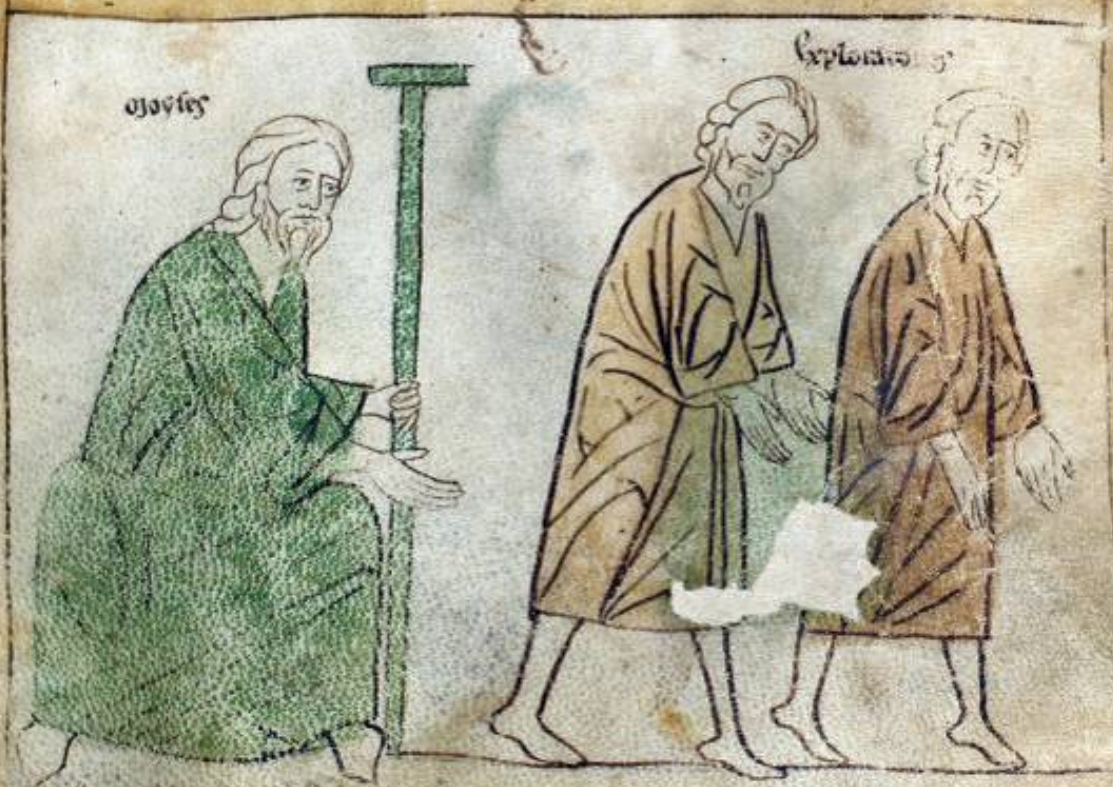 Moyses
Exploratores